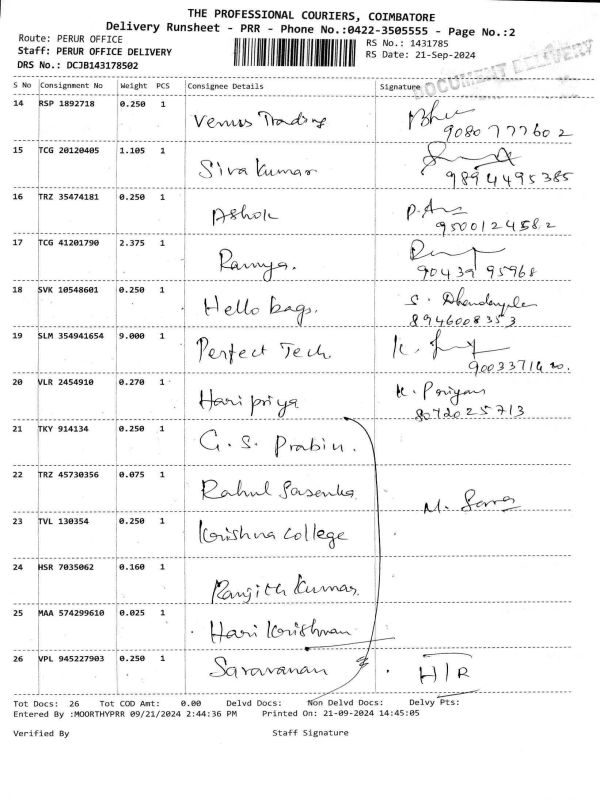 THE PROFESSIONAL COURIERS, COIMBATORE
Delivery Runsheet - PRR - Phone No.:0422-3505555 - Page No.:2
Route: PERUR OFFICE RS No.: 1431785
Staff: PERUR OFFICE DELIVERY RS Date: 21-Sep-2024
DRS No.: DCJB143178502 DOCUMENT DELIVERY
S No Consignment No Weight PCS Consignee Details Signature
14 RSP 1892718 0.250 1 Venus Trading
9080777602
15 TCG 20120405 1.105 1 Siva Kumar
9894495385
16 TRZ 35474181 0.250 1 Ashok
9500124582
17 TCG 41201790 2.375 1 Ramya.
9043995968
18 SVK 10548601 0.250 1 Hello bags.
8946008353
19 SLM 354941654 9.000 1 Perfect Tech.
20 VLR 2454910 0.270 1 Haripriya K. Poriyan
8072025713
21 TKY 914134 0.250 1 G. S. Prabin.
22 TRZ 45730356 0.075 1 Rahul Sasenka
23 TVL 130354 0.250 1 Krishna College
24 HSR 7035062 0.160 1 Ranjith Kumar.
25 MAA 574299610 0.025 1 Hari Krishnan
26 VPL 945227903 0.250 1 Saravanan H/R
Tot Docs: 26 Tot COD Amt: 0.00 Delvd Docs: Non Delvd Docs: Delvy Pts:
Entered By :MOORTHYPRR 09/21/2024 2:44:36 PM Printed On: 21-09-2024 14:45:05
Verified By Staff Signature